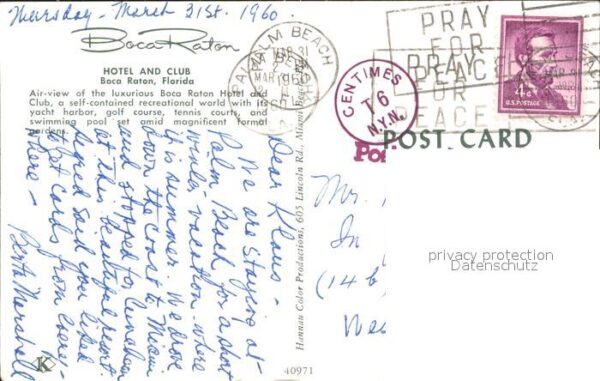 Thursday - March 31st. 1960.
Boca Raton
HOTEL AND CLUB
Boca Raton, Florida
Air-view of the luxurious Boca Raton Hotel and
Club, a self-contained recreational world with its
yacht harbor, golf course, tennis courts, and
swimming pool set amid magnificent formal
gardens.
Dear Klaus -
We are staying at
Palm Beach for a short
winter vacation where
it is summer. We drove
down the coast to Miami
and stopped for luncheon
at this beautiful resort.
Sigrid said you liked
post cards from every-
where -
Berta Marshall
K
Hannau Color Productions, 605 Lincoln Rd., Miami Beach
40971
PALM BEACH
MAR 31
1960
PRAY
FOR
PEACE
CENTIMES
T 6
N.Y.N.
4¢
U.S. POSTAGE
POST CARD
Mr.
In
(14 b
Wes
privacy protection
Datenschutz